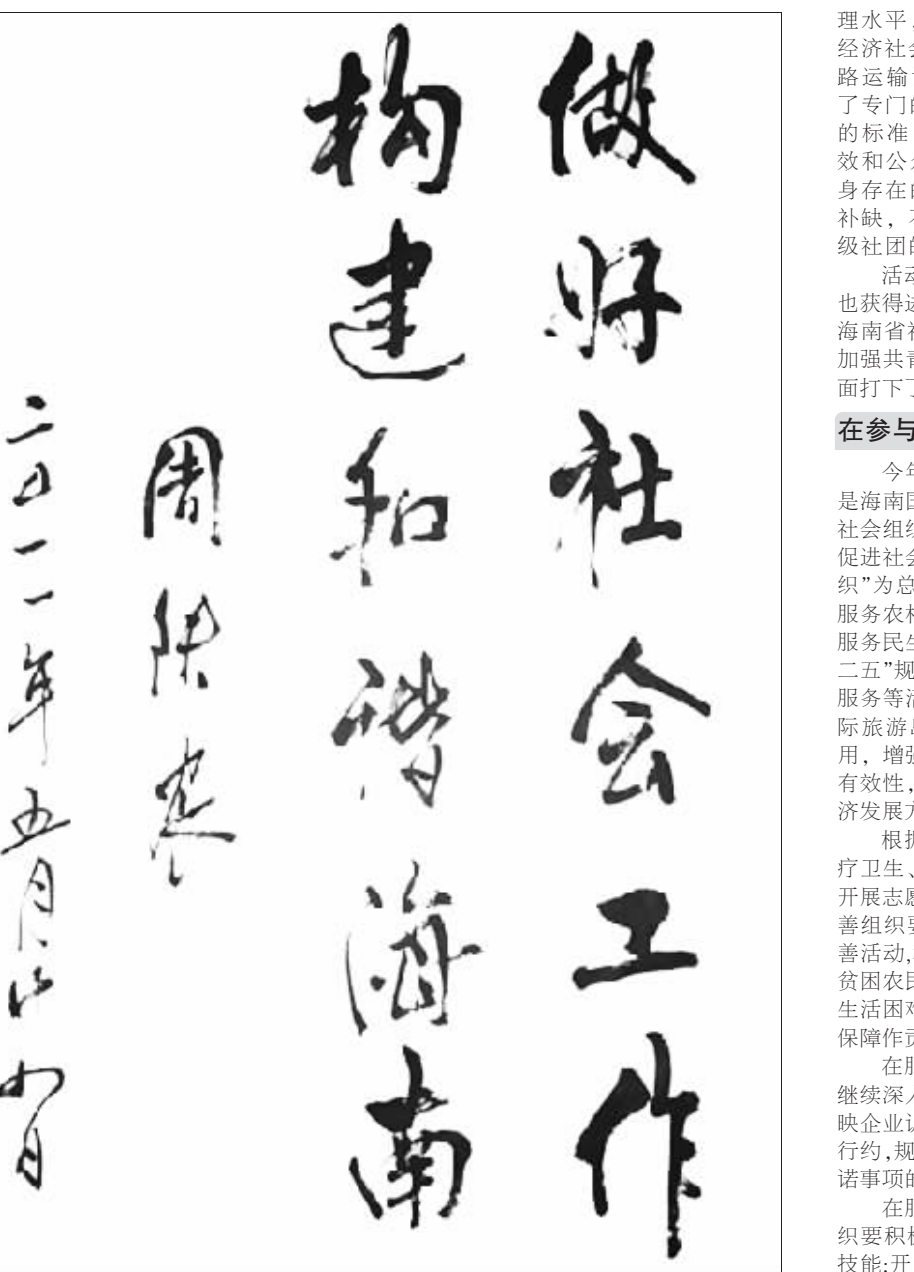 做好社会工作
构建和谐海南
周
二〇一一年五月
理水平，
经济社会
路运输
了专门的
的标准
效和公众
身存在的
补缺，不
级社团的
活动
也获得进
海南省社
加强共青
面打下了
在参与
今年
是海南国
社会组织
促进社会
织”为总
服务农村
服务民生
二五”规
服务等活
际旅游岛
用，增强
有效性，
济发展方
根据
疗卫生、
开展志愿
善组织要
善活动,
贫困农民
生活困难
保障作贡
在服
继续深入
映企业诉
行约,规
诺事项的
在服
织要积极
技能;开